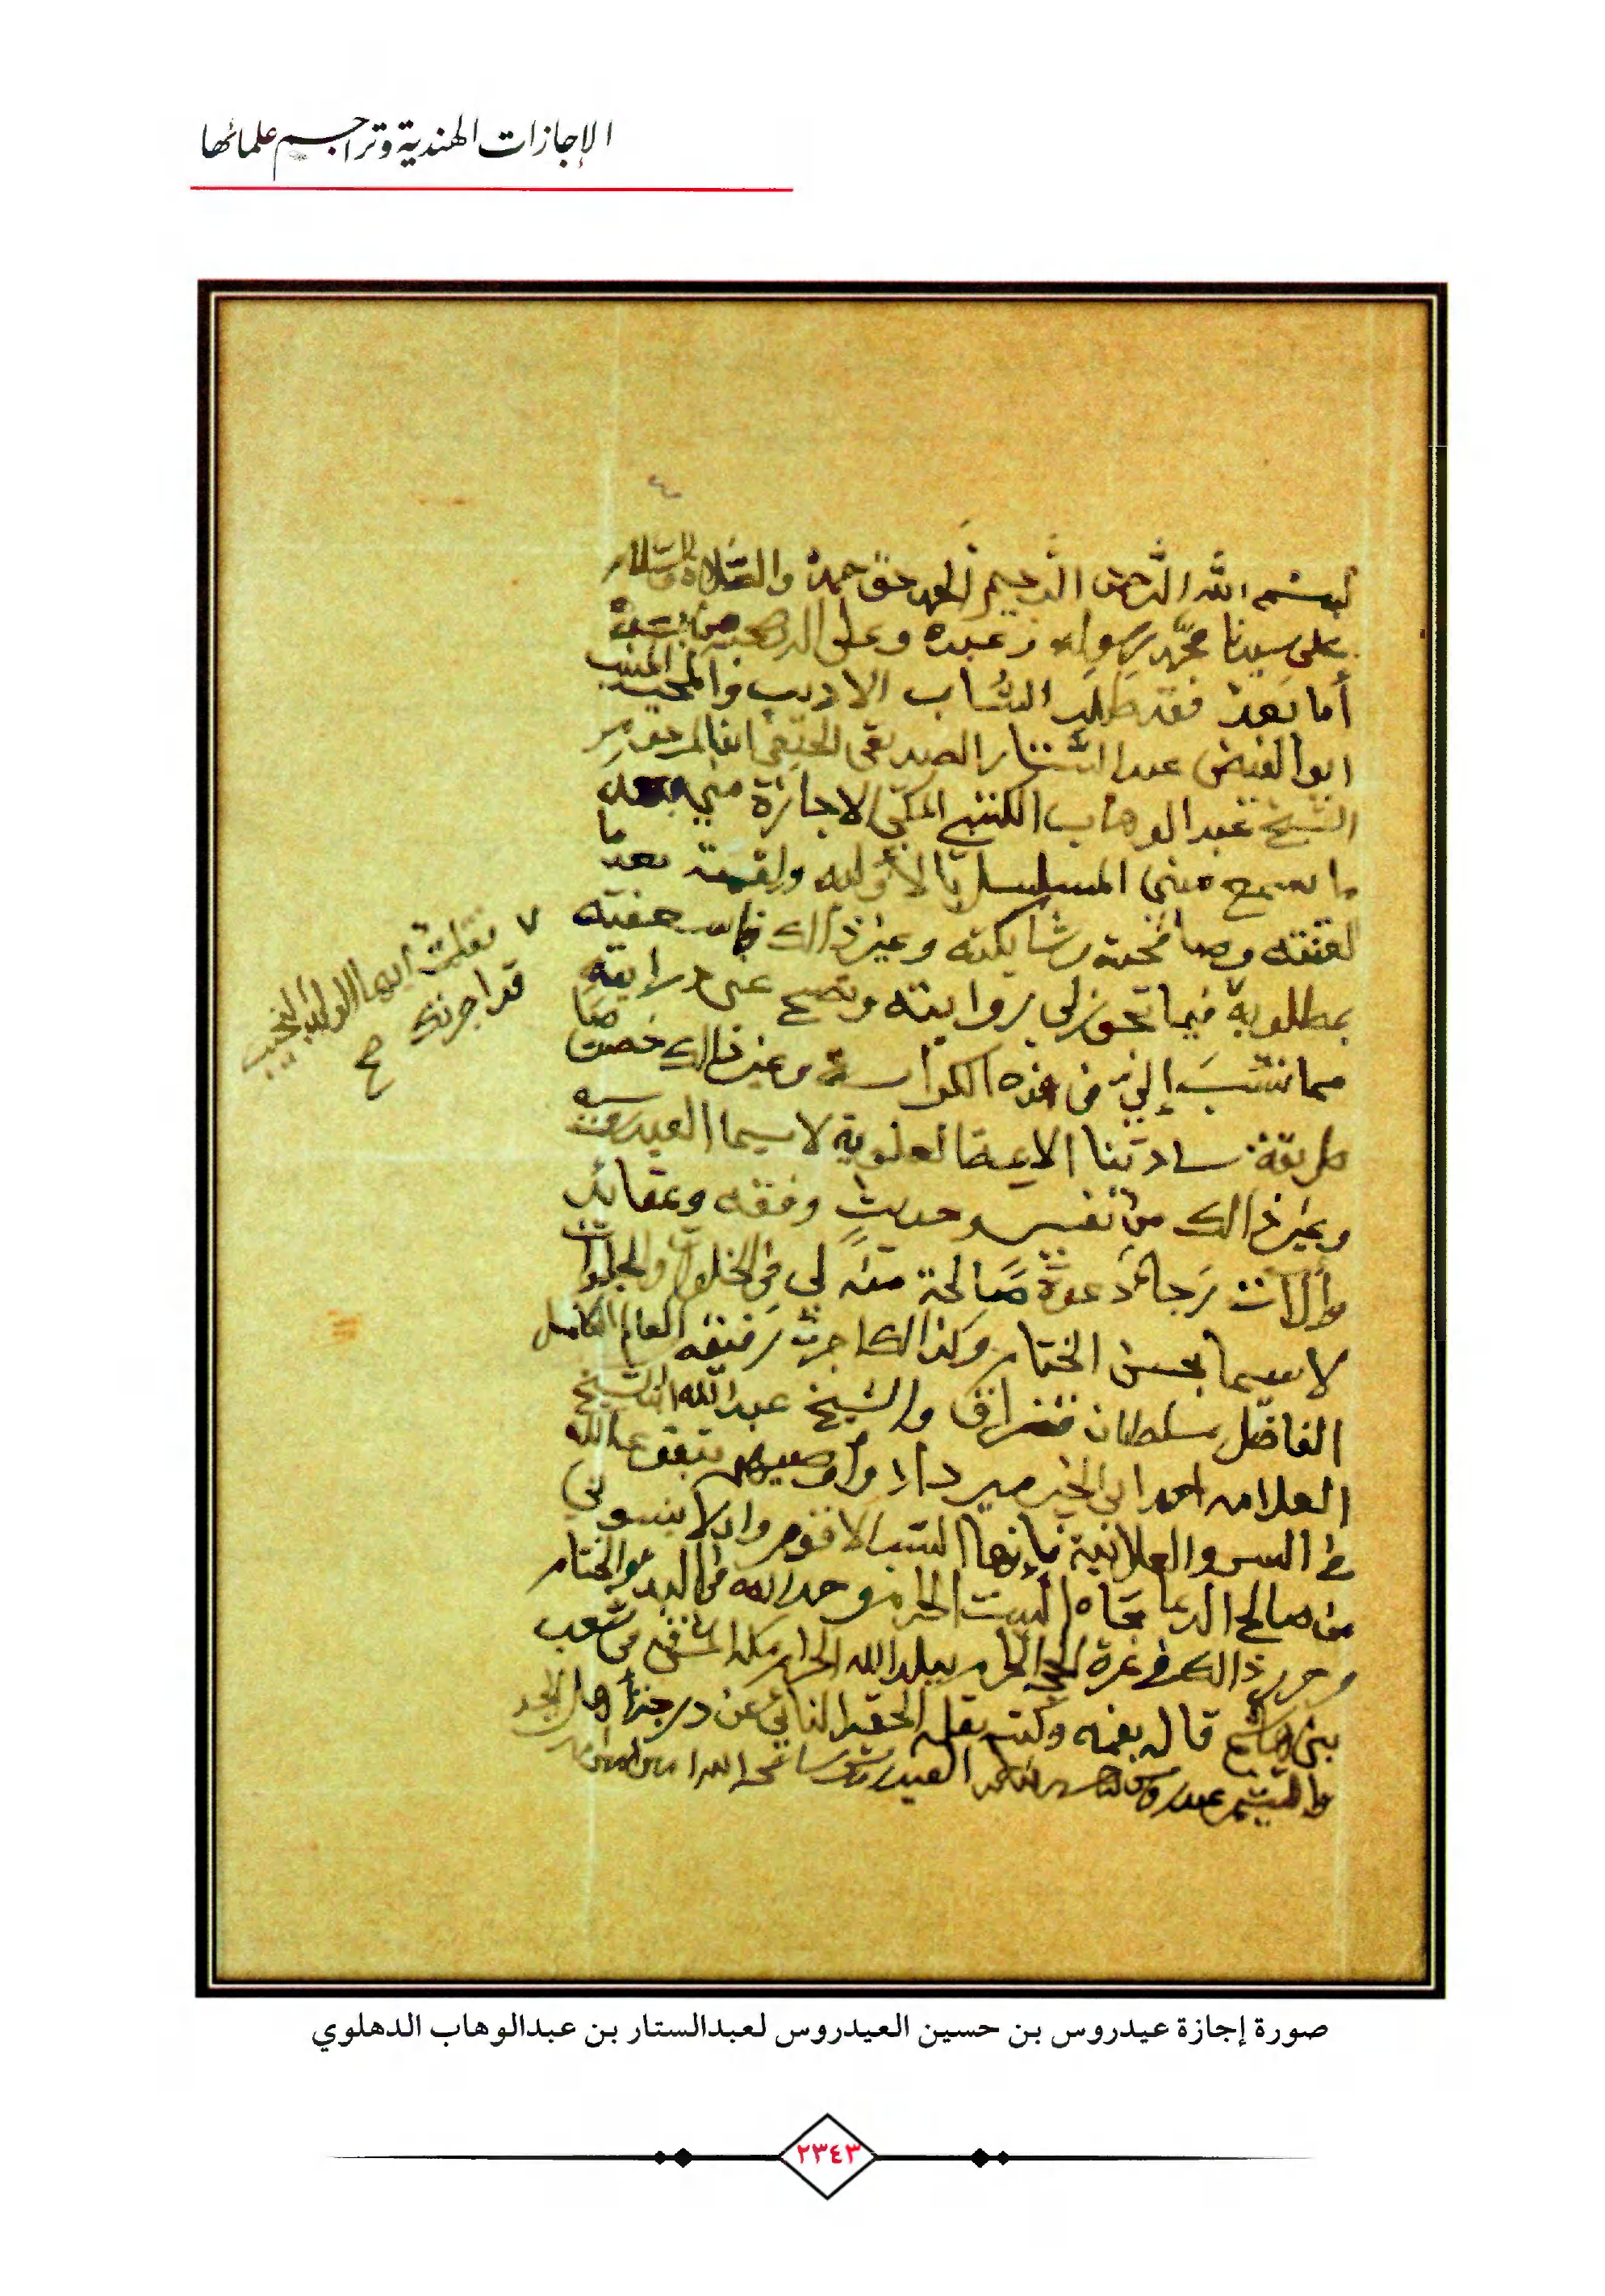 الإجازات الهندية وتراجم علمائها
بسم الله الرحمن الرحيم الحمد حق حمده والصلاة والسلام
على سيدنا محمد رسوله وعبده وعلى اله وصحبه من بعده
أما بعد فقد طلب الشاب الاديب والمحب المنيب
ابو الفيض عبد الستار الصديقي الحنفي ابن المرحوم
الشيخ عبد الوهاب الكتبي المكي الاجازة مني بعد
ما سمع مني المسلسل بالأوليه ولقمته بعد ما
لقنته وصافحته وشابكته وغير ذالك فاسعفته
بمطلوبه فيما تجوز لي روايته وتصح عني درايته
مما نسب إلي في هذه الكراسة وغير ذالك خصوصا
طريقة سادتنا العلوية لاسيما العيدروسيه
وغير ذالك من تفسير وحديث وفقه وعقائد
وآلات رجاء دعوة صالحة منه لي في الخلوات والجلوات
لاسيما بحسن الختام وكذالك اجزت رفيقه العالم الكامل
الفاضل سلطان والشيخ عبد الله ابن الشيخ
العلامه احمد ابي الخير ميرداد واوصيهم بتقوى الله
في السر والعلانية فإنها السبب الاقوم وان لا ينسوني
من صالح الدعا تجاه البيت الحرام وحد الله في البدء والختام
وحرر ذالك في غرة الحرام ببلد الله الحرام مكة المشرفه في شعب
بني هاشم قال بفمه وكتبه بقلمه الحقير النائي عن درجة اهل المجد
عيدروس بن العيدروس سامحه الله امين
٧ نقلت أيها الولد النجيب
قد اجزتك
صح
صورة إجازة عيدروس بن حسين العيدروس لعبدالستار بن عبدالوهاب الدهلوي
٢٣٤٣